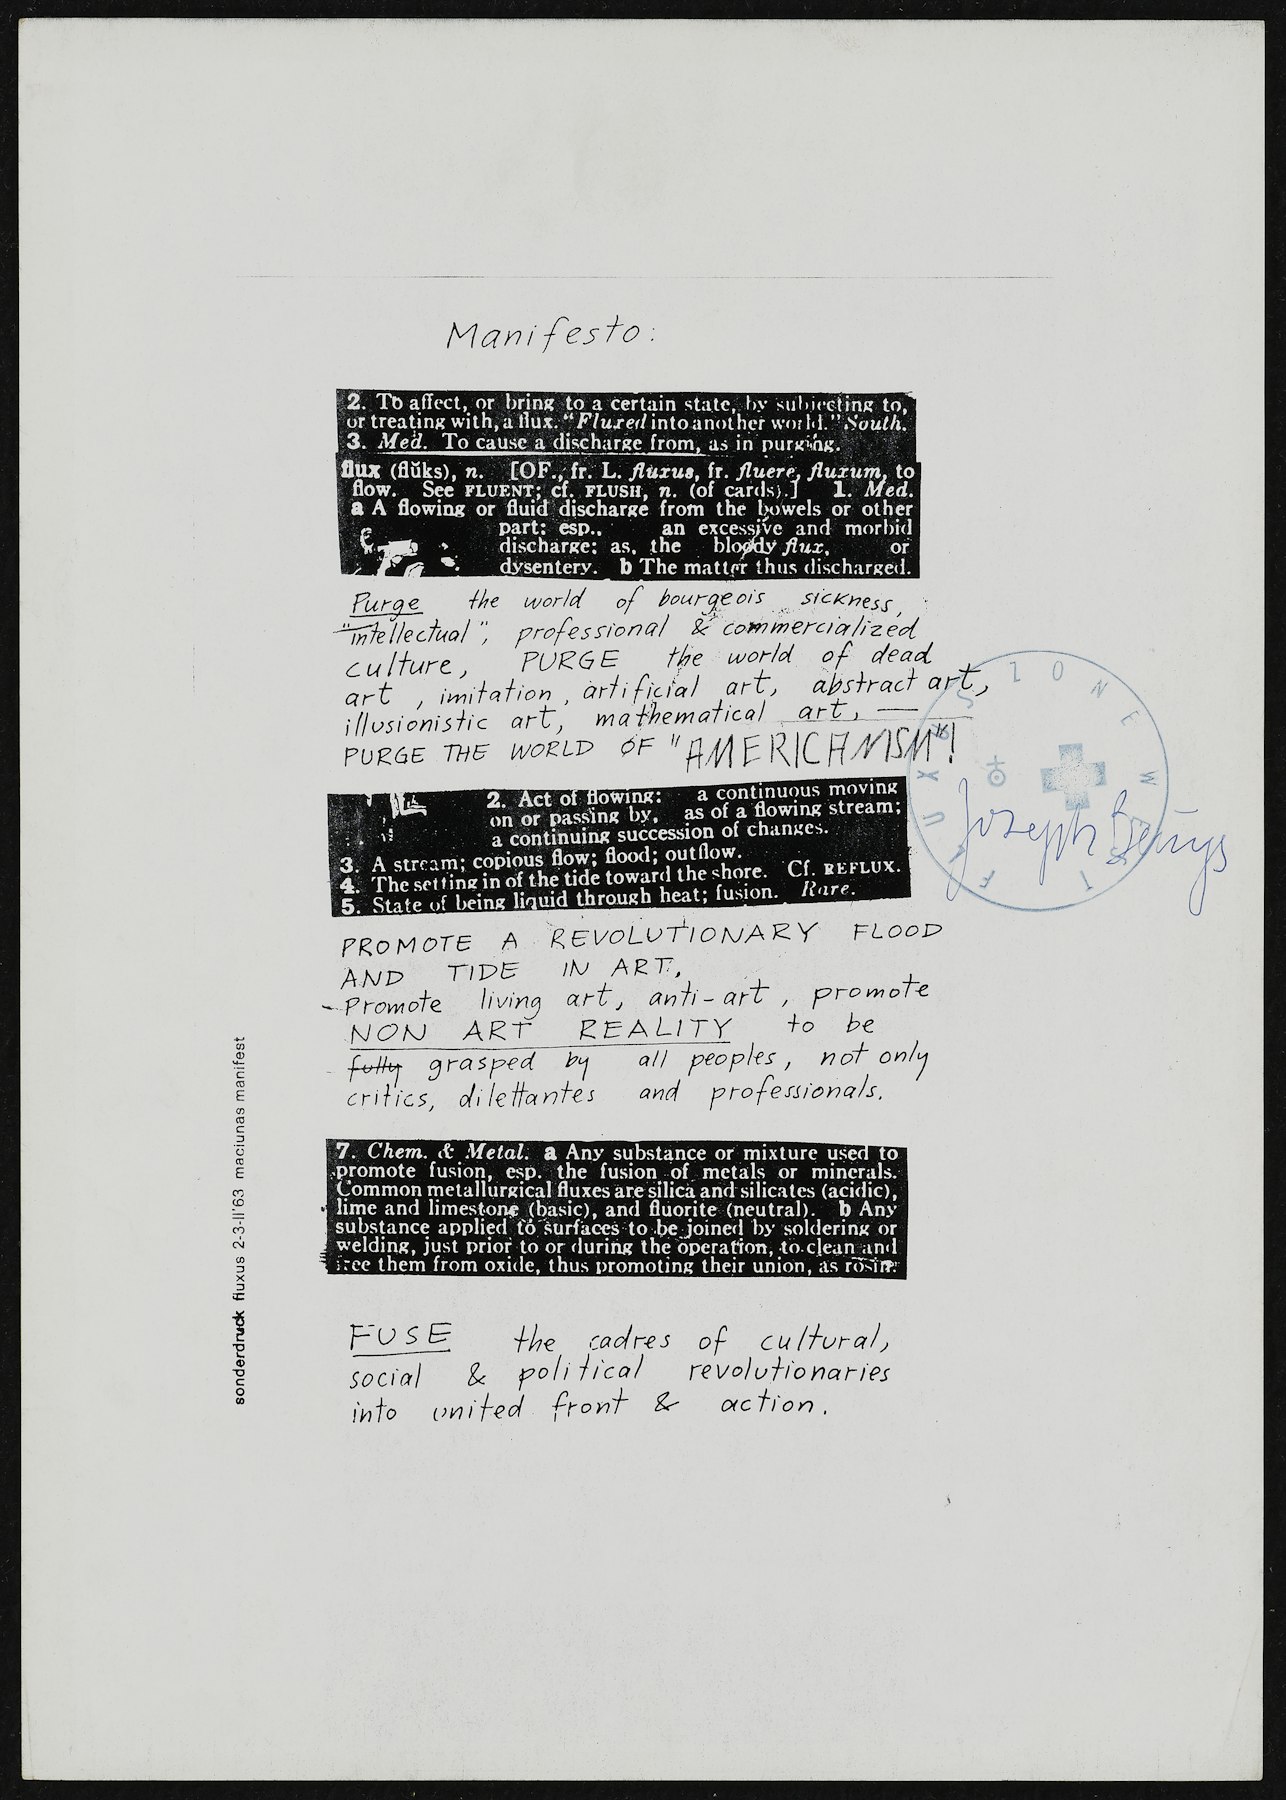 Manifesto:
2. To affect, or bring to a certain state, by subjecting to,
or treating with, a flux. "Fluxed into another world." South.
3. Med. To cause a discharge from, as in purging.
flux (flŭks), n. [OF., fr. L. fluxus, fr. fluere, fluxum, to
flow. See FLUENT; cf. FLUSH, n. (of cards).] 1. Med.
a A flowing or fluid discharge from the bowels or other
part: esp., an excessive and morbid
discharge: as, the bloody flux, or
dysentery. b The matter thus discharged.
Purge the world of bourgeois sickness,
"intellectual", professional & commercialized
culture, PURGE the world of dead
art, imitation, artificial art, abstract art,
illusionistic art, mathematical art, —
PURGE THE WORLD OF "AMERICANISM"!
2. Act of flowing: a continuous moving
on or passing by, as of a flowing stream;
a continuing succession of changes.
3. A stream; copious flow; flood; outflow.
4. The setting in of the tide toward the shore. Cf. REFLUX.
5. State of being liquid through heat; fusion. Rare.
PROMOTE A REVOLUTIONARY FLOOD
AND TIDE IN ART,
Promote living art, anti-art, promote
NON ART REALITY to be
fully grasped by all peoples, not only
critics, dilettantes and professionals.
7. Chem. & Metal. a Any substance or mixture used to
promote fusion, esp. the fusion of metals or minerals.
Common metallurgical fluxes are silica and silicates (acidic),
lime and limestone (basic), and fluorite (neutral). b Any
substance applied to surfaces to be joined by soldering or
welding, just prior to or during the operation, to clean and
free them from oxide, thus promoting their union, as rosin.
FUSE the cadres of cultural,
social & political revolutionaries
into united front & action.
sonderdruck fluxus 2-3-II'63 maciunas manifest
FLUXUS ZONE WEST
Joseph Beuys